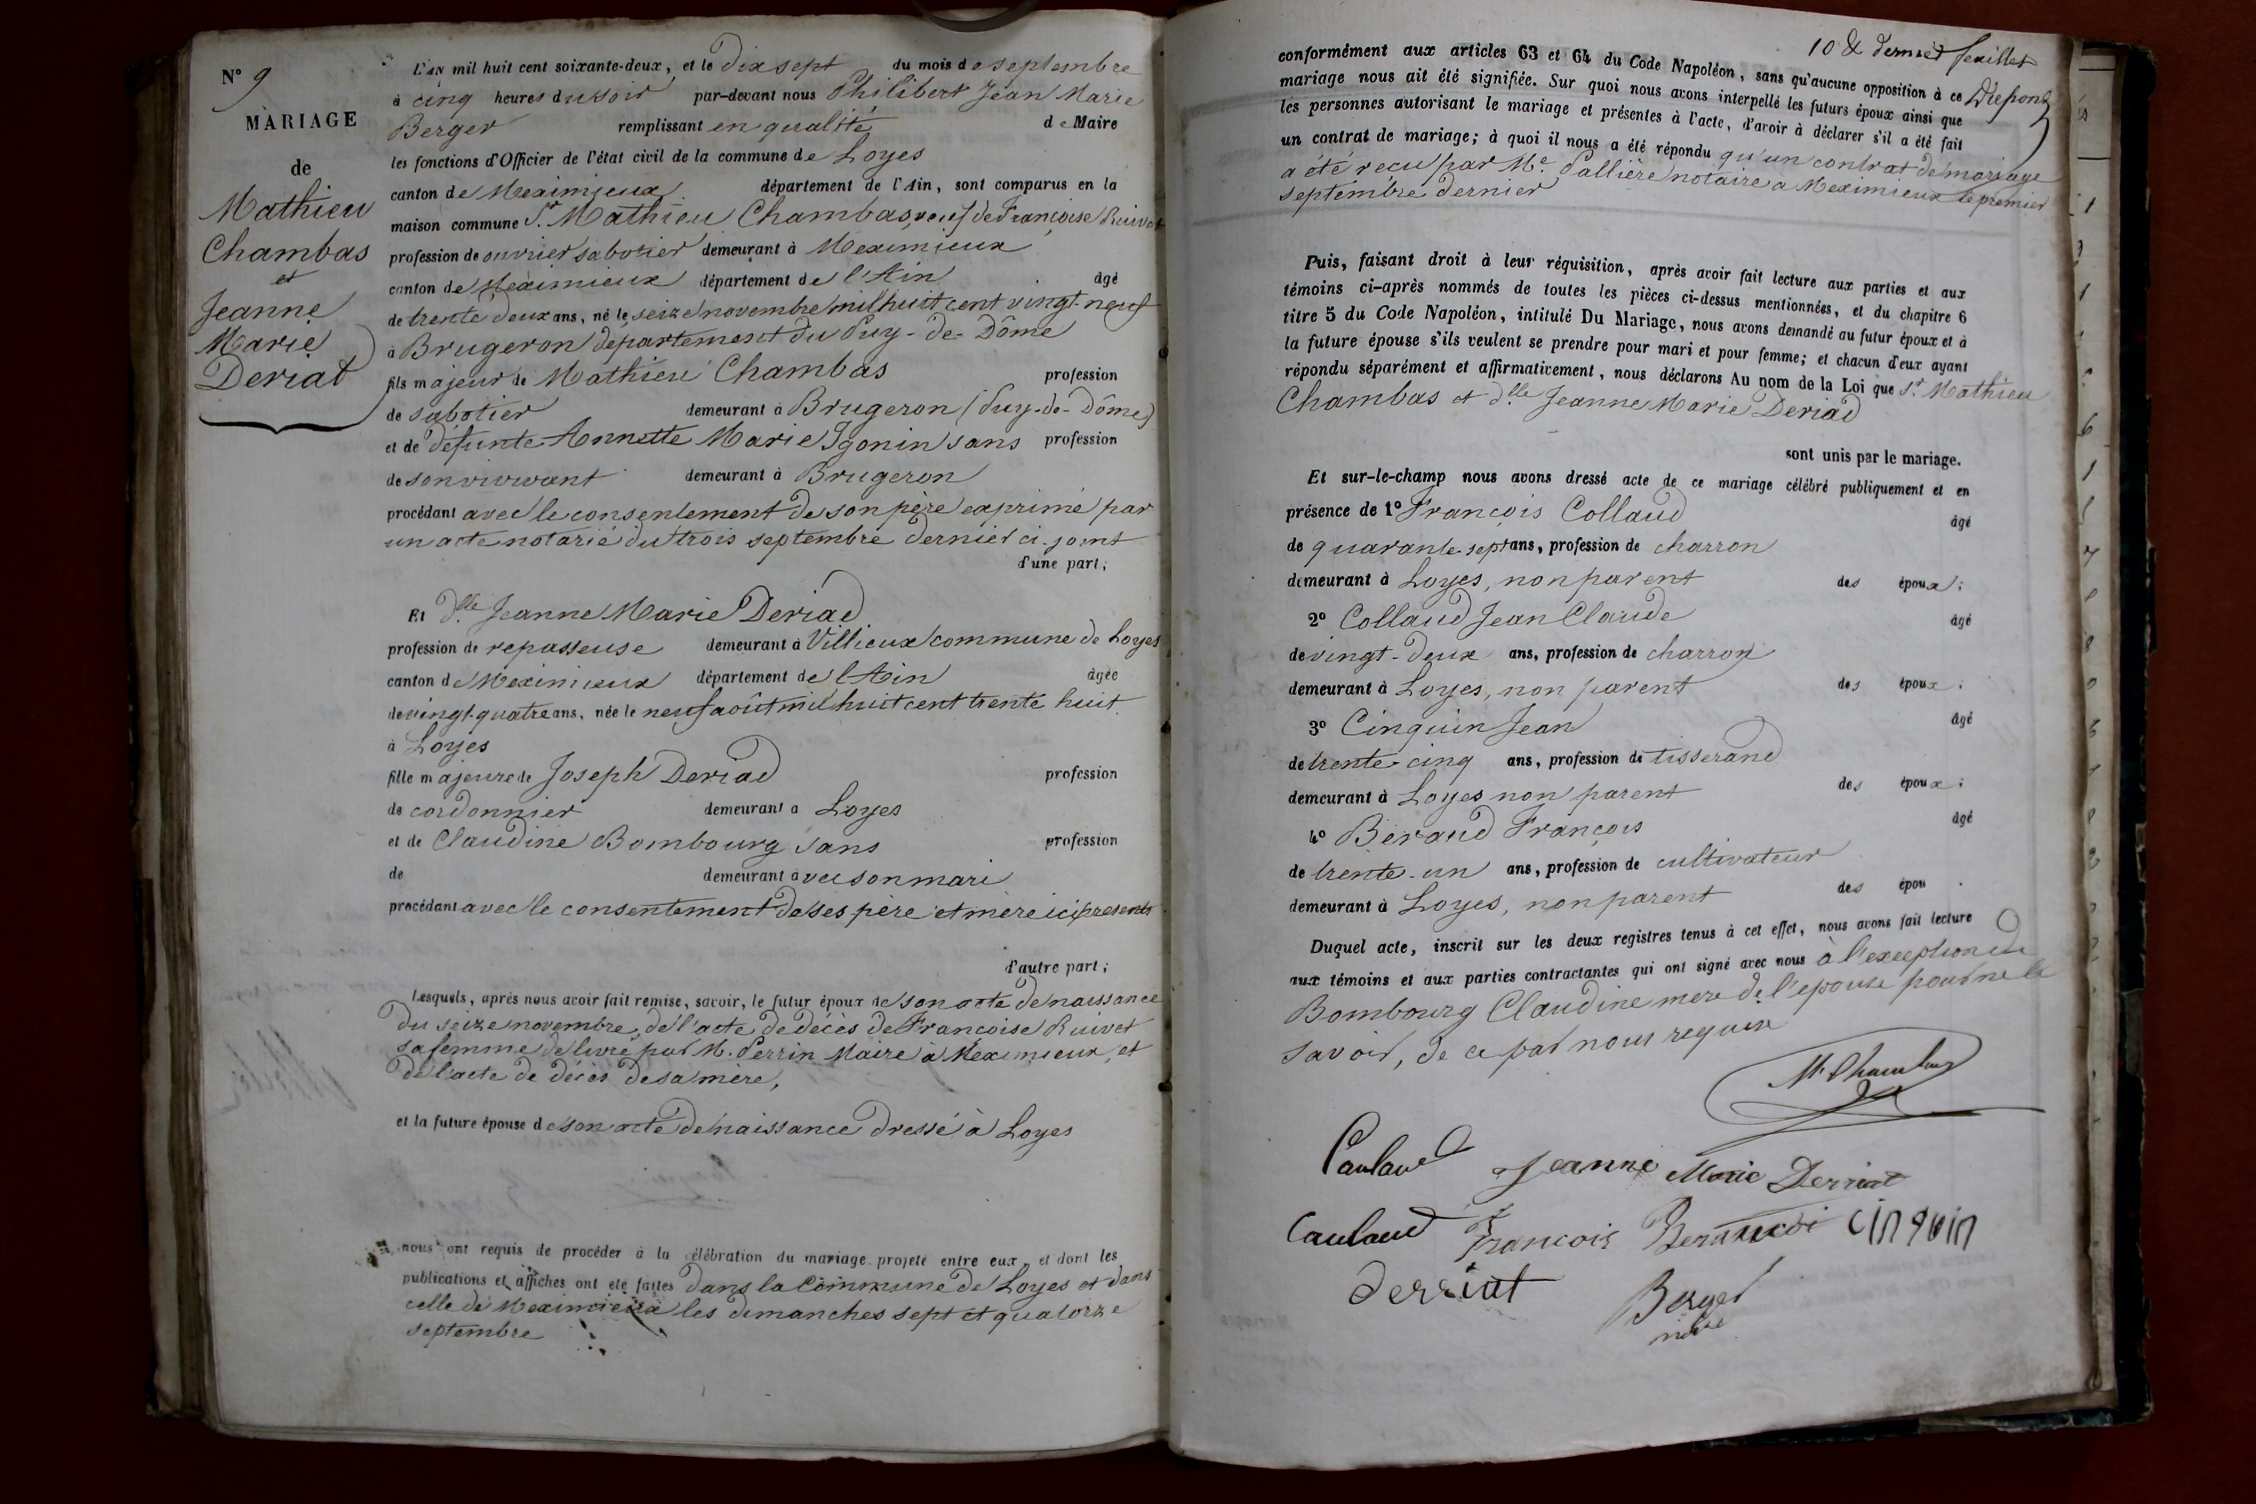 N° 9
MARIAGE
de
Mathieu
Chambas
et
Jeanne
Marie
Deriat
L'an mil huit cent soixante-deux, et le dix sept du mois de septembre
à cinq heures du soir par-devant nous Philibert Jean Marie
Berger remplissant en qualité de Maire
les fonctions d'Officier de l'état civil de la commune de Loyes
canton de Meximieux département de l'Ain, sont comparus en la
maison commune Sr Mathieu Chambas, veuf de Françoise Ruivet
profession de ouvrier sabotier demeurant à Meximieux
canton de Meximieux département de l'Ain âgé
de trente deux ans, né le seize novembre mil huit cent vingt-neuf
à Brugeron département du Puy-de-Dôme
fils majeur de Mathieu Chambas profession
de sabotier demeurant à Brugeron (Puy-de-Dôme)
et de défunte Annette Marie Igonin sans profession
de son vivant demeurant à Brugeron
procédant avec le consentement de son père exprimé par
un acte notarié du trois septembre dernier ci-joint
d'une part;
Et dlle Jeanne Marie Deriad
profession de repasseuse demeurant à Villieux commune de Loyes
canton de Meximieux département de l'Ain âgée
de vingt-quatre ans, née le neuf août mil huit cent trente huit
à Loyes
fille majeure de Joseph Deriad profession
de cordonnier demeurant à Loyes
et de Claudine Bombourg sans profession
de demeurant avec son mari
procédant avec le consentement de ses père et mère ici présents
d'autre part;
Lesquels, après nous avoir fait remise, savoir, le futur époux de son acte de naissance
du seize novembre, de l'acte de décès de Françoise Ruivet
sa femme délivré par M. Perrin Maire à Meximieux, et
de l'acte de décès de sa mère,
et la future épouse de son acte de naissance dressé à Loyes
nous ont requis de procéder à la célébration du mariage projeté entre eux, et dont les
publications et affiches ont été faites dans la Commune de Loyes et dans
celle de Meximieux les dimanches sept et quatorze
septembre
10 & dernier feuillet
conformément aux articles 63 et 64 du Code Napoléon, sans qu'aucune opposition à ce
mariage nous ait été signifiée. Sur quoi nous avons interpellé les futurs époux ainsi que
les personnes autorisant le mariage et présentes à l'acte, d'avoir à déclarer s'il a été fait
un contrat de mariage; à quoi il nous a été répondu qu'un contrat de mariage
a été reçu par Me Pallière notaire a Meximieux le premier
septembre dernier
Puis, faisant droit à leur réquisition, après avoir fait lecture aux parties et aux
témoins ci-après nommés de toutes les pièces ci-dessus mentionnées, et du chapitre 6
titre 5 du Code Napoléon, intitulé Du Mariage, nous avons demandé au futur époux et à
la future épouse s'ils veulent se prendre pour mari et pour femme; et chacun d'eux ayant
répondu séparément et affirmativement, nous déclarons Au nom de la Loi que Sr Mathieu
Chambas et dlle Jeanne Marie Deriad
sont unis par le mariage.
Et sur-le-champ nous avons dressé acte de ce mariage célébré publiquement et en
présence de 1° François Collaud âgé
de quarante-sept ans, profession de charron
demeurant à Loyes, non parent des époux;
2° Collaud Jean Claude âgé
de vingt-deux ans, profession de charron
demeurant à Loyes, non parent des époux;
3° Cinquin Jean âgé
de trente-cinq ans, profession de tisserand
demeurant à Loyes non parent des époux;
4° Béraud François âgé
de trente-un ans, profession de cultivateur
demeurant à Loyes, non parent des épou .
Duquel acte, inscrit sur les deux registres tenus à cet effet, nous avons fait lecture
aux témoins et aux parties contractantes qui ont signé avec nous à l'exception de
Bombourg Claudine mère de l'épouse pour ne le
savoir, de ce par nous requise
M. Chambas
Caulaud Jeanne Marie Derriat
Caulaud François Cinquin
derriat Berger